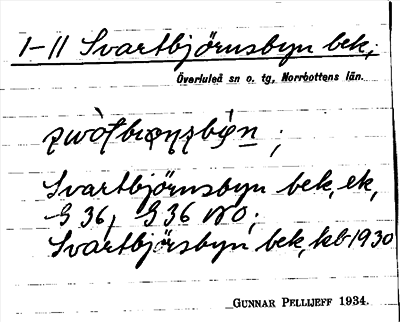 1-11 Svartbjörnsbyn bek.;
Överluleå sn o. tg, Norrbottens län.
Svartbjörnsbyn bek, ek,
G 36, G 36 NO;
Svartbjörsbyn, bek, kb 1930
GUNNAR PELLIJEFF 1934.